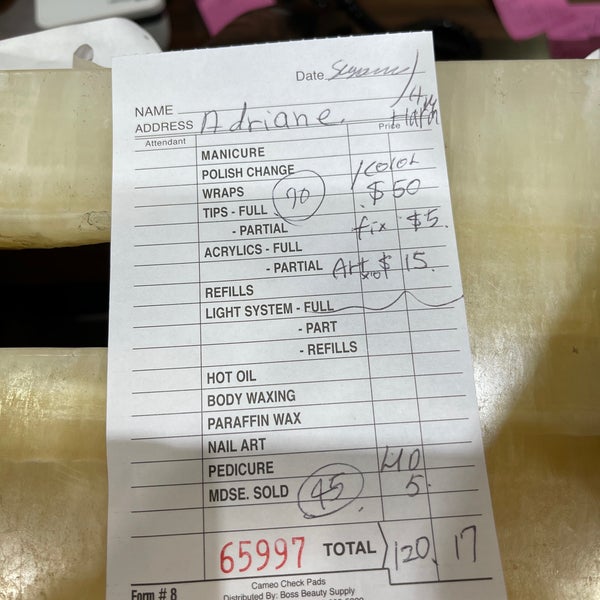 Date
NAME
ADDRESS Adriane.
Attendant Price
MANICURE
POLISH CHANGE / color
WRAPS $50
TIPS - FULL 70
- PARTIAL fix $5.
ACRYLICS - FULL
- PARTIAL Art $15.
REFILLS
LIGHT SYSTEM - FULL
- PART
- REFILLS
HOT OIL
BODY WAXING
PARAFFIN WAX
NAIL ART
PEDICURE 40
MDSE. SOLD 45 5.
65997 TOTAL 120. 17
Form # 8 Cameo Check Pads
Distributed By: Boss Beauty Supply